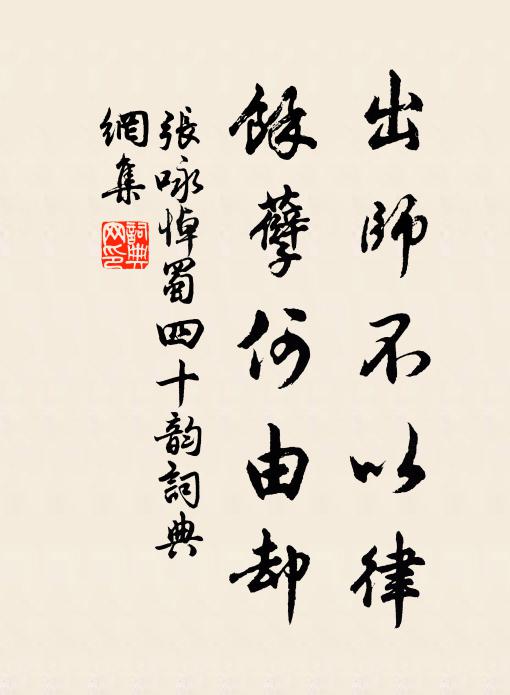 出師不以律
餘孽何由却
張咏悼蜀四十韵詞典
網集
詞典網印